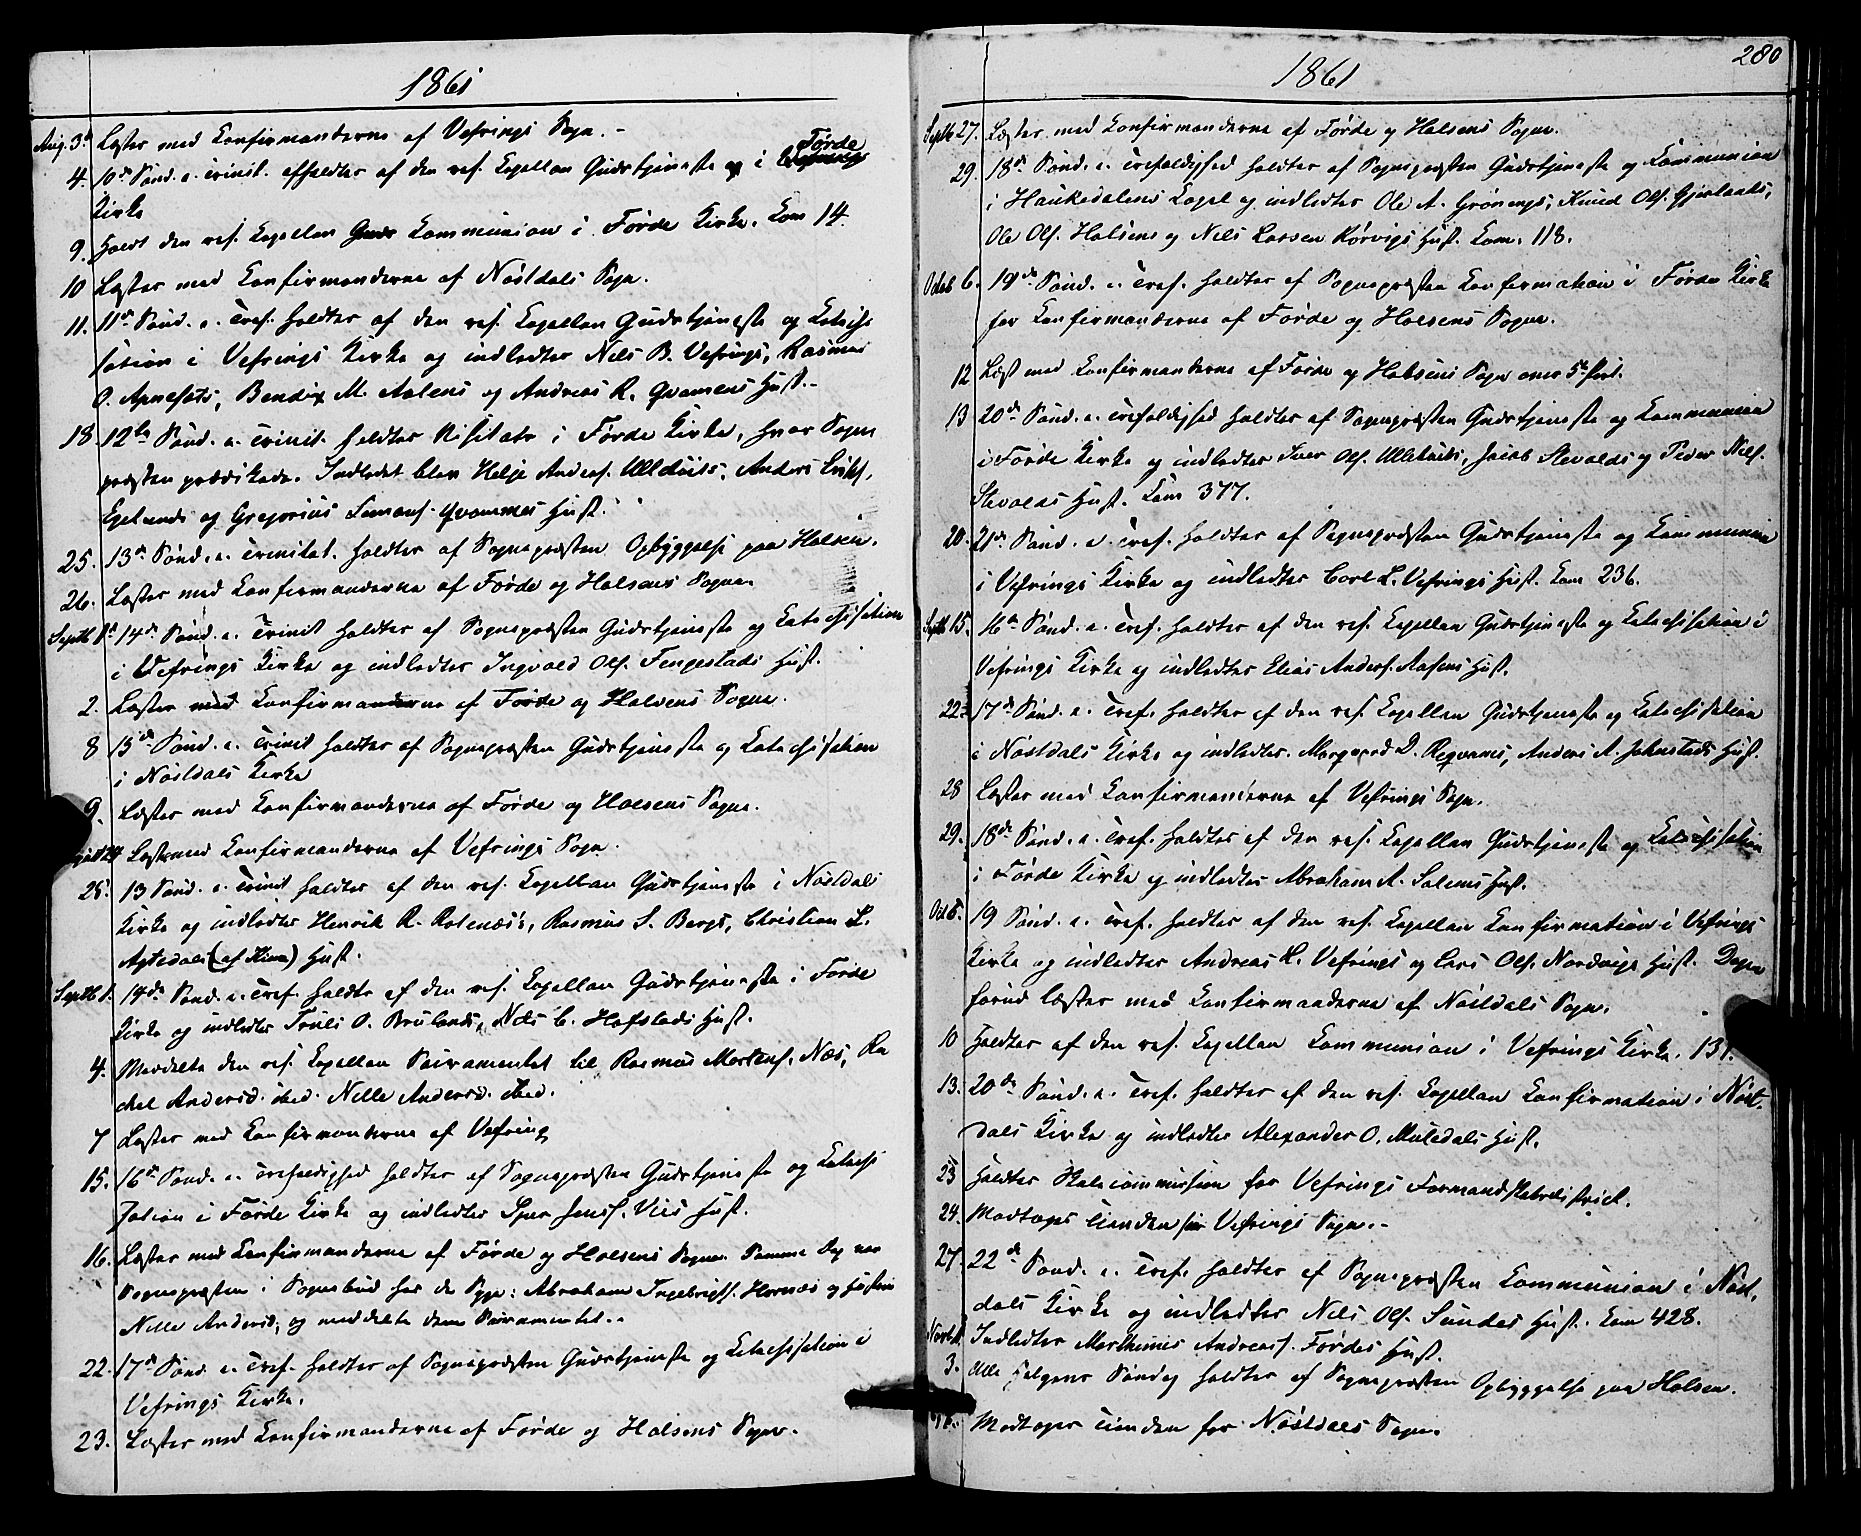 1861
Aug. 3die Læstes med Konfirmanderne af Vefrings Sogn. -
4. 10de Sønd. e. Trinit. afholdtes af den res. Kapellan Gudstjeneste og i Førde
Kirke
9. Holdt den res. Kapellan Kommunion i Førde Kirke. Kom 14.
10 Læstes med Konfirmanderne af Nøstdals Sogn.
11. 11te Sønd. e. Tref. holdtes af den res. Kapellan Gudstjeneste og Katechi
sation i Vefrings Kirke og indledtes Nils B. Vefrings, Rasmus
O. Apnesæts, Bendix M. Aalens og Andreas R. Qvamens Hust.-
18 12te Sønd. e. Trinit. holdtes Visitats i Førde Kirke, hvor Sogne
præsten prædikede. Indledet blev Helje Anders. Ulltuits, Anders Eriks.
Egelunds og Gregorius Simons. Qvammes Hust.
25. 13de Sønd. e. Trinitat. holdtes af Sognepræsten Opbyggelse paa Holsen.
26. Læstes med Konfirmanderne af Førde og Holsens Sogne.
Septb 1ste 14de Sønd. e. Trinit holdtes af Sognepræsten Gudstjeneste og Katechisation
i Vefrings Kirke og indledtes Ingvald Ols. Tengestads Hust.
2. Læstes med Konfirmanderne af Førde og Holsens Sogne.
8 15de Sønd. e. Trinit holdtes af Sognepræsten Gudstjeneste og Katechisation
i Nøstdals Kirke
9. Læstes med Konfirmanderne af Førde og Holsens Sogne.
24 Læstes med Konfirmanderne af Vefrings Sogn.
25. 13 Sønd. e. Trinit holdtes af den res. Kapellan Gudstjeneste i Nøstdals
Kirke og indledtes Henrik R. Rolenæs's, Rasmus S. Bergs, Christian L.
(af Kinn) Hust.
Septb 1. 14de Sønd. e. Tref. holdtes af den res. Kapellan Gudstjeneste i Førde
Kirke og indledtes Truls O. Brulands, Nils C. Hafstads Hust.
4. Meddelte den res. Kapellan Sacramentet til Rasmus Mortens. Næs, Ra
chel Andersd. ibid. Nille Andersd. ibid.
7 Læstes med Konfirmanderne af Vefring
15. 16de Sønd. e. Trefoldighed holdtes af Sognepræsten Gudstjeneste og Katechi
sation i Førde Kirke og indledtes Jens. Vies Hust.
16. Læstes med Konfirmanderne af Førde og Holsens Sogne. Samme Dag var
Sognepræsten i Sognebud hos de Syge: Abraham Ingebrigts. Hornæs og Hustru
Nille Andersd. og meddelte dem Sacramentet. -
22. 17de Sønd. e. Tref. holdtes af Sognepræsten Gudstjeneste og Katechisation i
Vefrings Kirke.
23. Læstes med Konfirmanderne af Førde og Holsens Sogne.
280
1861
Septb 27. Læstes med Konfirmanderne af Førde og Holsens Sogne.
29. 18de Sønd. e. Trefoldighed holdtes af Sognepræsten Gudstjeneste og Kommunion
i Haukedalens Kapel og indledtes Ole A. Grønengs, Knud Ols. Gjerlands,
Ole Ols. Holsens og Nils Larsen Rørvigs Hust. Kom. 118.
Octob 6. 19de Sønd. e. Tref. holdtes af Sognepræsten Konfirmation i Førde Kirke
for Konfirmanderne af Førde og Holsens Sogne.
12 Læst med Konfirmanderne af Førde og Holsens Sogn over 5te Part.
13 20de Sønd. e. Trefoldighed holdtes af Sognepræsten Gudstjeneste og Kommunion
i Førde Kirke og indledtes Iver Ols. Ulltuits, Jacob Slevolds og Peder Nils.
Slevolds Hust. Kom 377.
20. 21de Sønd. e. Tref. holdtes af Sognepræsten Gudstjeneste og Kommunion
i Vefrings Kirke og indledtes Carl L. Vefrings Hust. Kom 236.
Septb 15. 16de Sønd. e. Tref. holdtes af den res. Kapellan Gudstjeneste og Katechisation i
Vefrings Kirke og indledtes Elias Anders. Aasens Hust.
22. 17de Sønd. e. Tref. holdtes af den res. Kapellan Gudstjeneste og Katechisation
i Nøstdals Kirke og indledtes D. Anders A. Hust.
28 Læstes med Konfirmanderne af Vefrings Sogn.
29. 18de Sønd. e. Tref. holdtes af den res. Kapellan Gudstjeneste og Katechisation
i Førde Kirke og indledtes Abraham A. Solems Hust.
Oct 6. 19 Sønd. e. Tref. holdtes af den res. Kapellan Konfirmation i Vefrings
Kirke og indledtes Andreas H. Vefrings og Lars Ols. Nordvigs Hust. Dagen
forud læstes med Konfirmanderne af Nøstdals Sogn.
10 Holdtes af den res. Kapellan Kommunion i Vefrings Kirke.
13. 20de Sønd. e. Tref. holdtes af den res. Kapellan Konfirmation i Nøst-
dals Kirke og indledtes Alexander O. Muledals Hust.
23 Holdtes Skolecommission for Vefrings Formandskabsdistrict.
24. Modtoges Tienden for Vefrings Sogn. -
27. 22de Sønd. e. Tref. holdtes af Sognepræsten Kommunion i Nøst-
dals Kirke og indledtes Nils Ols. Sundes Hust. Kom 428.
Novb 1. Indledtes Marthinus Andreas. Førdes Hust.
3. Alle Helgens Søndag holdtes af Sognepræsten Opbyggelse paa Holsen.
Modtoges Tienden for Nøstdals Sogn.